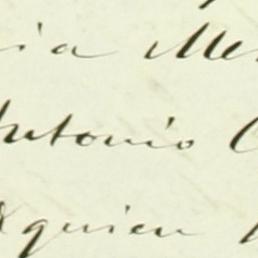 ia Me
Antonio C
quien